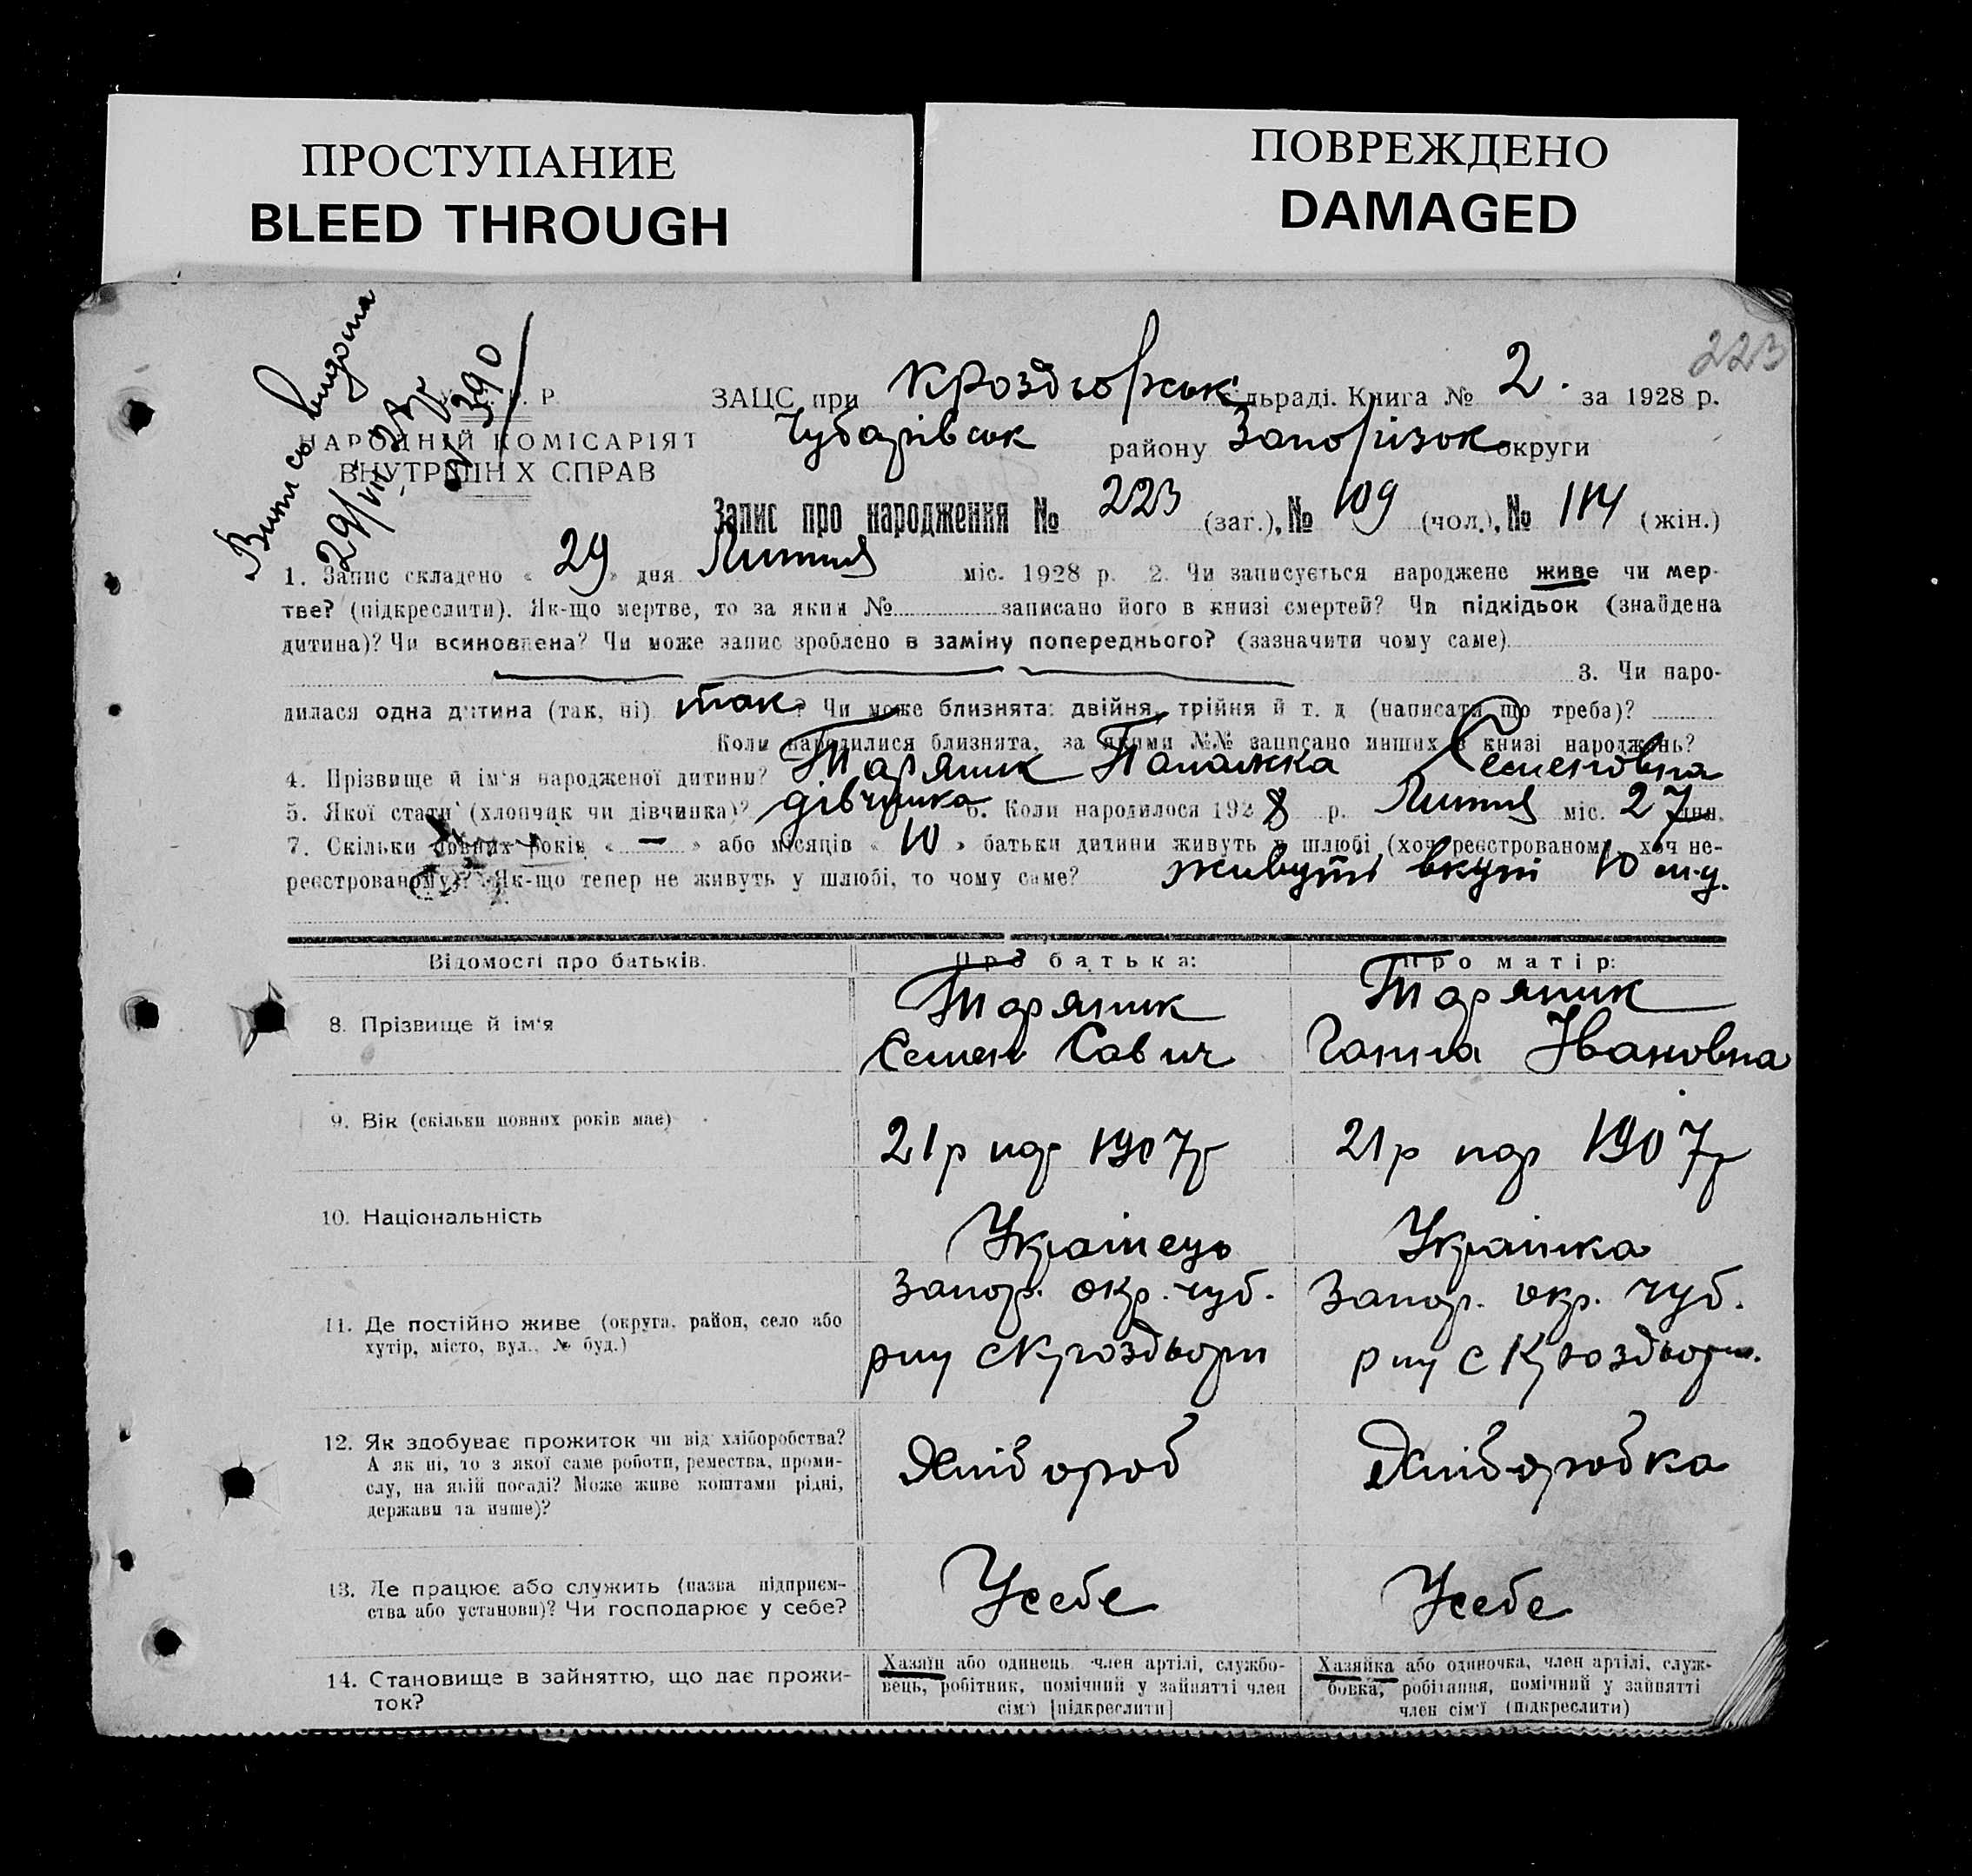 ПРОСТУПАНИЕ
BLEED THROUGH
ПОВРЕЖДЕНО
DAMAGED
223
Випись видана
29/VII
390
ЗАЦС при Кроздворськ льраді. Книга № 2. за 1928 р.
НАРОДНІЙ КОМІСАРІЯТ
ВНУТРІШНІХ СПРАВ
Чубарівськ району Запорізьк округи
Запис про народження № 223 (заг.), № 109 (чол.), № 114 (жін.)
1. Запис складено « 29 » дня Лютня міс. 1928 р. 2. Чи записується народжене живе чи мер-
тве? (підкреслити). Як-що мертве, то за яким № записано його в книзі смертей? Чи підкідьок (знайдена
дитина)? Чи всиновлена? Чи може запис зроблено в заміну попереднього? (зазначити чому саме)
3. Чи наро-
дилася одна дитина (так, ні) так? Чи може близнята: двійня, трійня й т. д (написати що треба)?
Коли народилися близнята, за якими №№ записано инших в книзі народжень?
4. Прізвище й ім'я народженої дитини? Таряник Палажка Семеновна
5. Якої стати (хлопчик чи дівчинка)? дівчинка 6. Коли народилося 1928 р. Лютня міс. 27 дня.
7. Скільки повних років « — » або місяців « 10 » батьки дитини живуть у шлюбі (хоч реєстрованому, хоч не-
реєстрованому)? Як-що тепер не живуть у шлюбі, то чому саме? живуть вкупі 10 м-ц.
Відомості про батьків. Про батька: Про матір:
8. Прізвище й ім'я
Таряник
Семен Савич
Таряник
Ганна Івановна
9. Вік (скільки повних років має)
21 р нар 1907 р
21 р нар 1907 р
10. Національність
Українець
Українка
11. Де постійно живе (округа, район, село або
хутір, місто, вул., № буд.)
Запор. окр. Чуб.
рну с
Запор. окр. Чуб.
рну с
12. Як здобуває прожиток чи від хліборобства?
А як ні, то з якої саме роботи, ремества, проми-
слу, на якій посаді? Може живе коштами рідні,
держави та инше)?
Хлібороб
Хліборобка
13. Де працює або служить (назва підприєм-
ства або установи)? Чи господарює у себе?
У себе
У себе
14. Становище в зайняттю, що дає прожи-
ток?
Хазяїн або одинець член артілі, службо-
вець, робітник, помічний у зайнятті член
сім'ї [підкреслити]
Хазяйка або одиночка, член артілі, служ-
бовка, робітниця, помічний у зайнятті
член сім'ї (підкреслити)